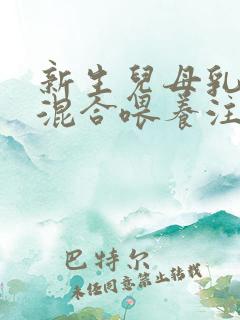 新生兒母乳
混合喂養注
巴特尔
未经同意禁止转载